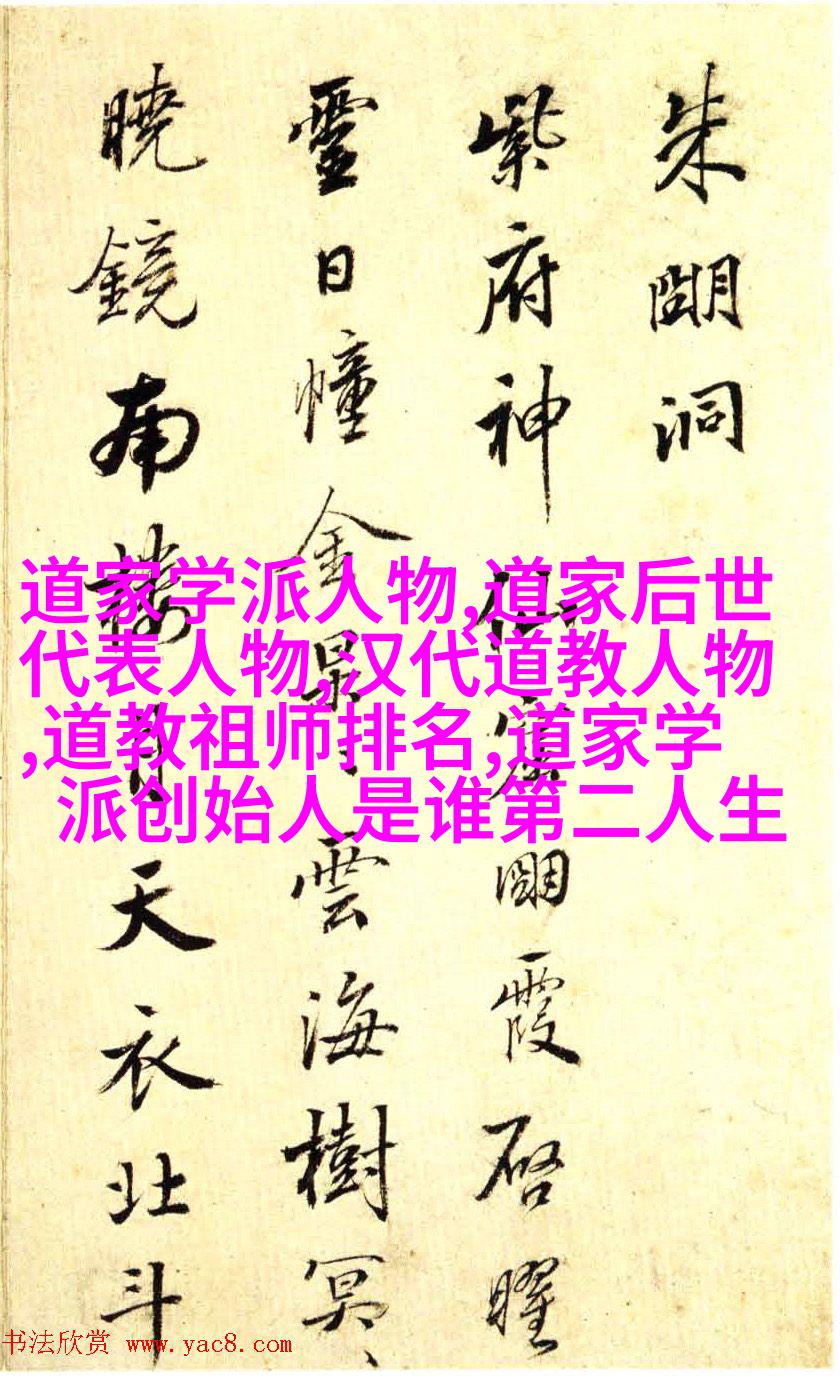 朱朙洞
紫府神仙窟朙霞啓曜
靈日幢金晃〻雲海樹冥〻
曉鏡南樓月天衣北斗
道家学派人物,道家后世
代表人物,汉代道教人物
,道教祖师排名,道家学
派创始人是谁第二人生
书法欣赏 www.yac8.com